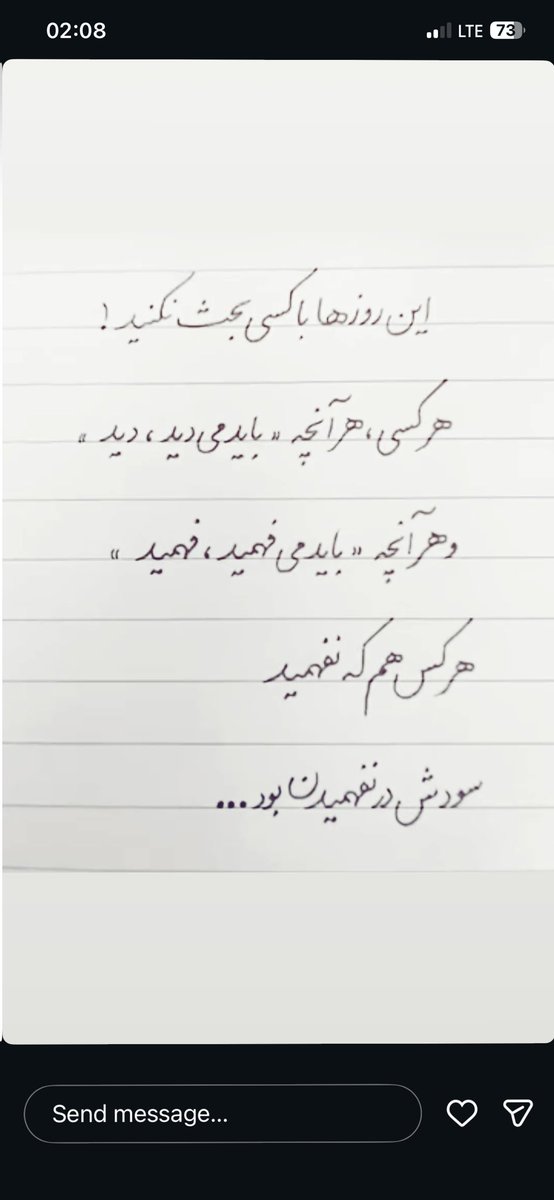 02:08 LTE 73
این روزها با کسی بحث نکنید!
هر کسی، هر آنچه «باید می دید، دید»
و هر آنچه «باید می فهمید، فهمید»
هر کس هم که نفهمید
سودش در نفهمیدن بود...
Send message...